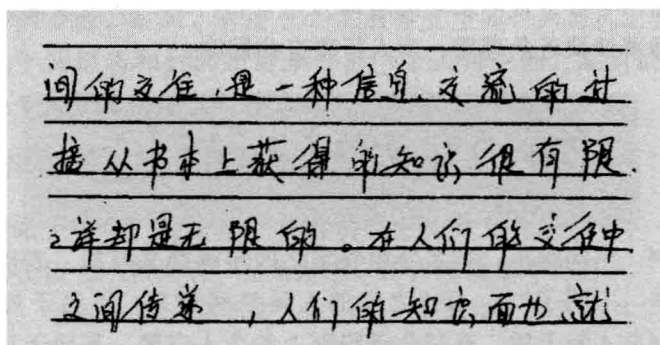 间的交往,是一种信息交流的过
接从书本上获得的知识很有限.
这样却是无限的。在人们的交往中
之间传递,人们的知识面也就